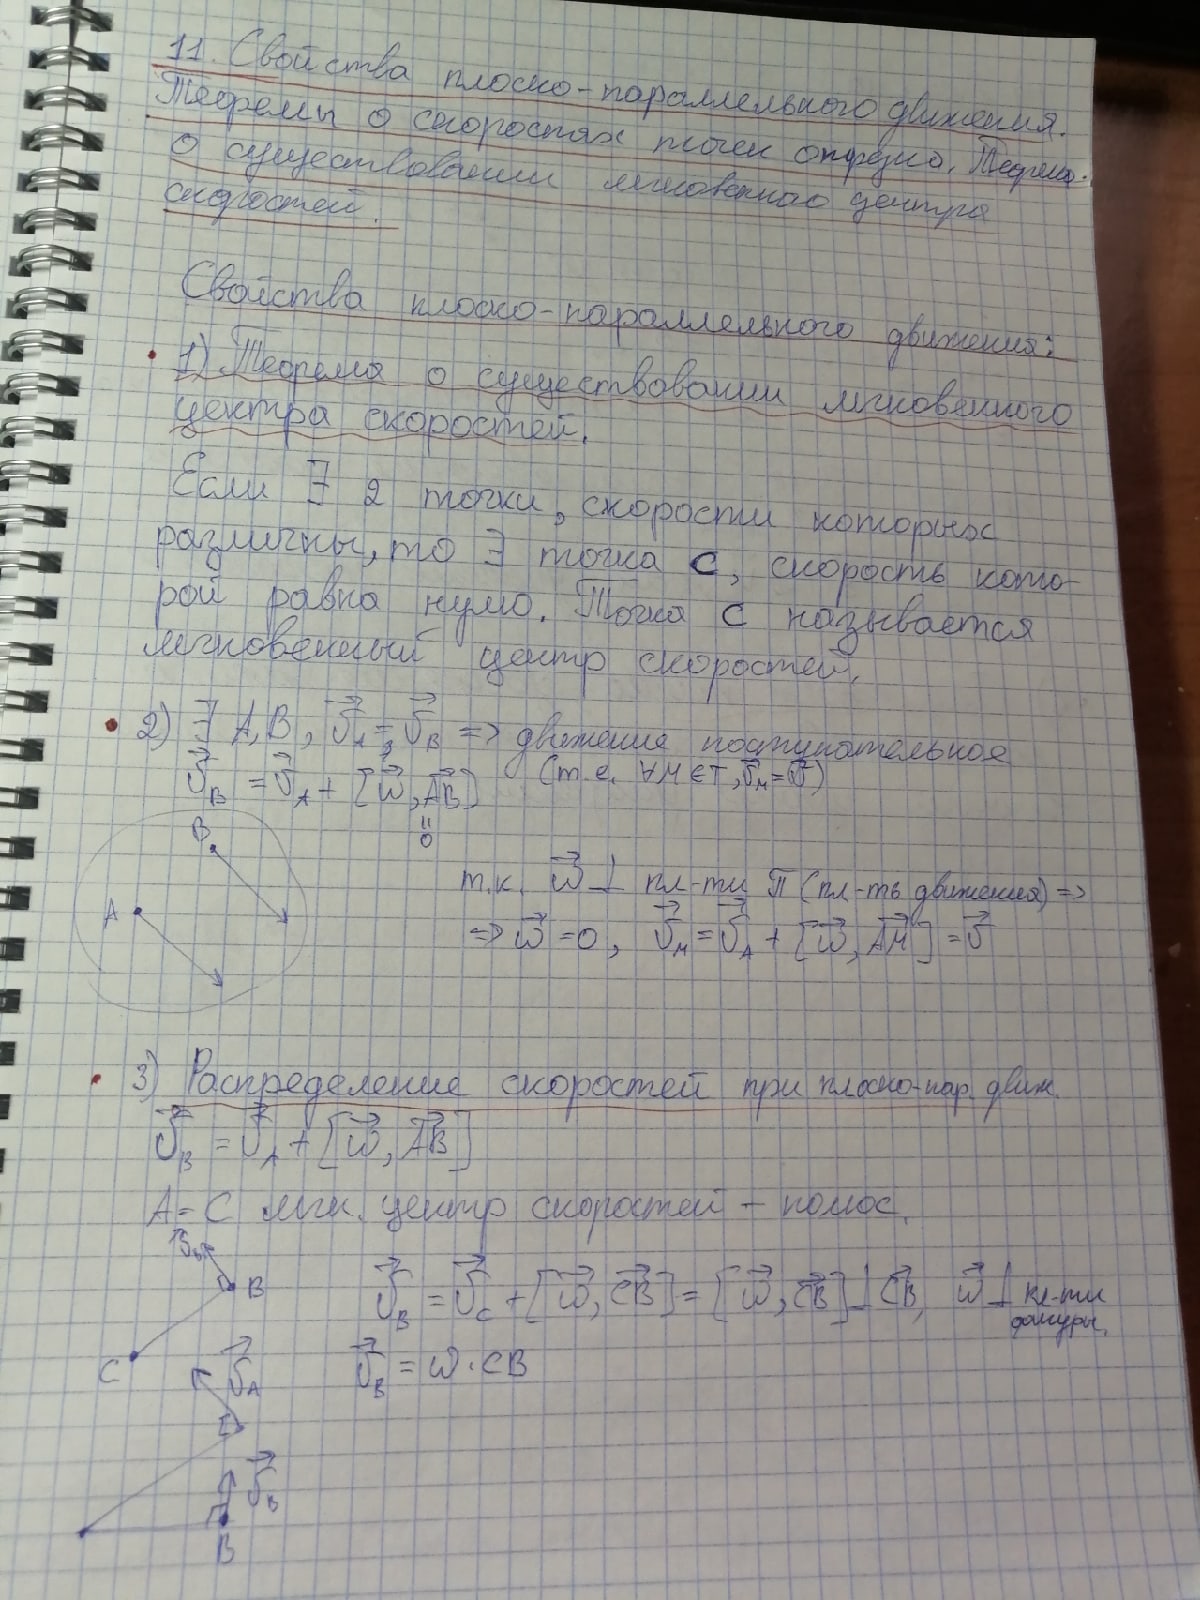 11. Свойства плоско-параллельного движения.
Теоремы о скоростях точек отрезка. Теорема
о существовании мгновенного центра
скоростей.
Свойства плоско-параллельного движения:
1) Теорема о существовании мгновенного
центра скоростей.
Если ∃ 2 точки, скорости которых
различны, то ∃ точка C, скорость кото-
рой равна нулю. Точка C называется
мгновенный центр скоростей.
2) ∃ A, B, v⃗_A = v⃗_B => движение поступательное
v⃗_B = v⃗_A + [w⃗, AB⃗] (т.е. ∀M∈T, v⃗_M = v⃗)
B
=
0
A
т.к. w⃗ ⊥ пл-ти П (пл-ть движения) =>
=> w⃗ = 0, v⃗_M = v⃗_A + [w⃗, AM⃗] = v⃗
3) Распределение скоростей при плоско-пар. движ.
v⃗_B = v⃗_A + [w⃗, AB⃗]
A = C мгн. центр скоростей - полюс.
v⃗_B
B
v⃗_B = v⃗_C + [w⃗, CB⃗] = [w⃗, CB⃗] ⊥ CB⃗, w⃗ ⊥ пл-ти
фигуры,
C
v⃗_A
v⃗_B = w · CB
v⃗_B
B